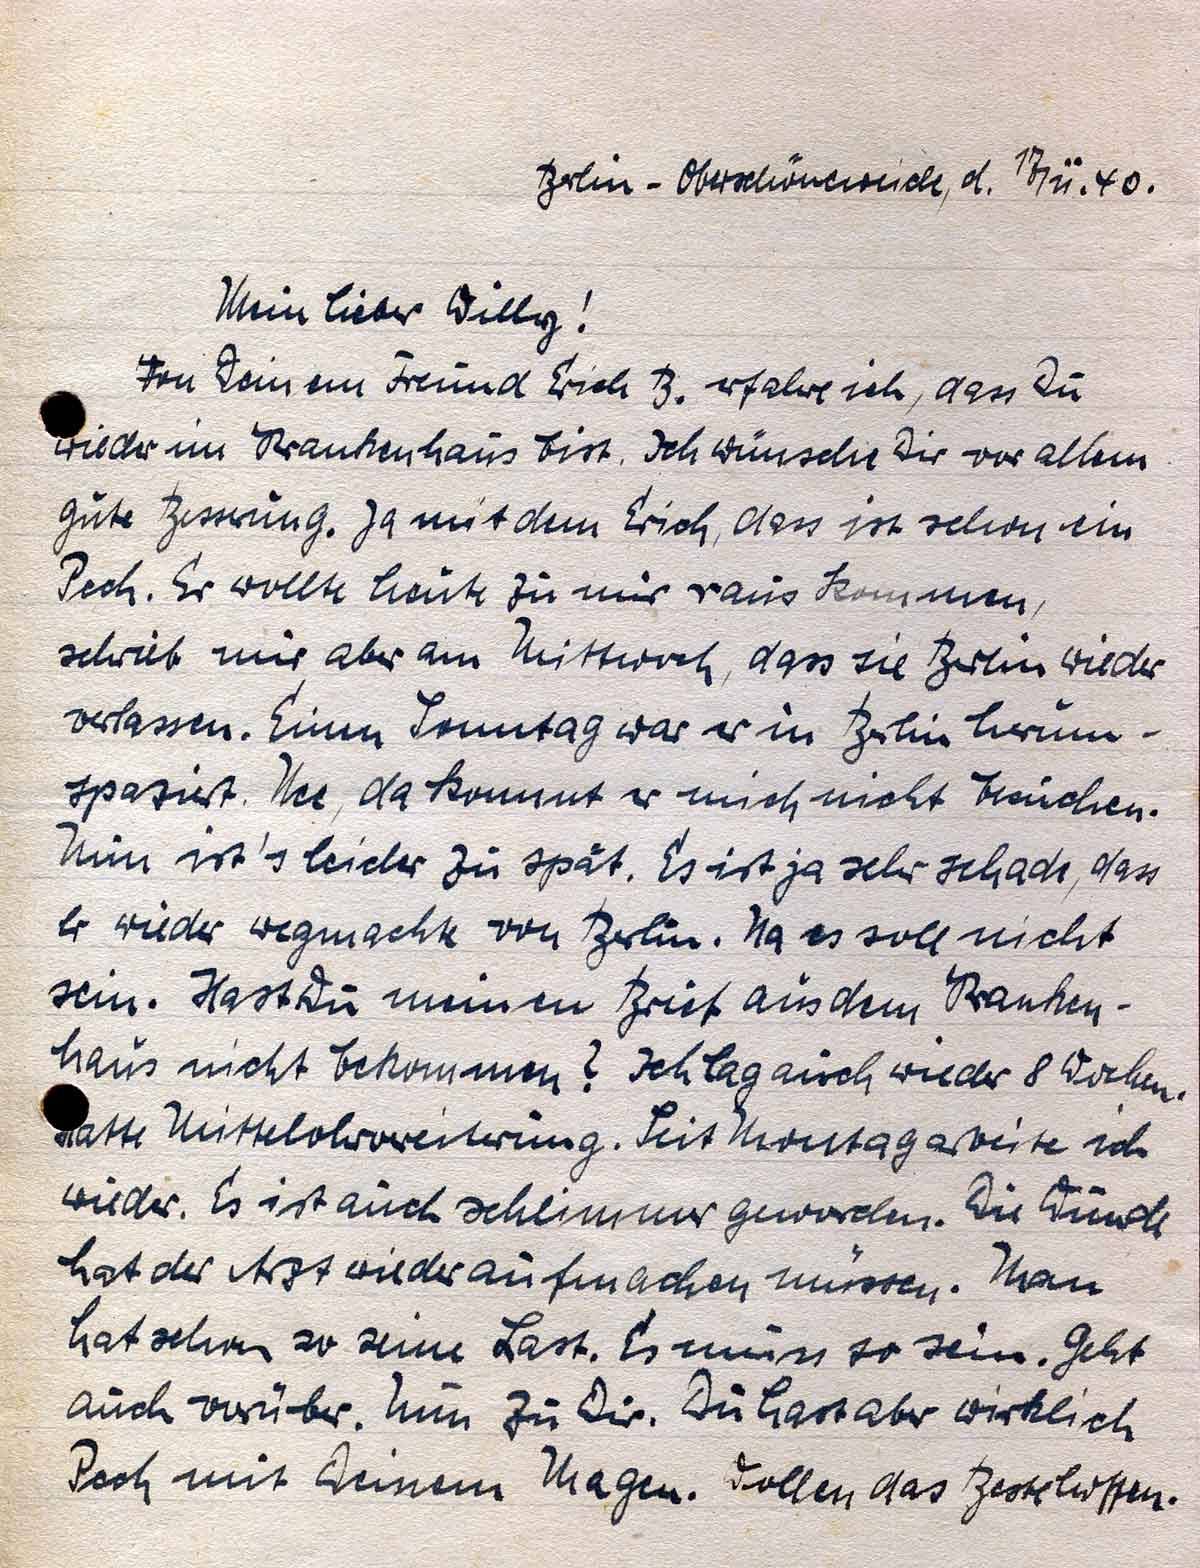 Berlin-Oberschöneweide, d. 17/11.40.
Mein lieber Willy!
Von Deinem Freund Erich B. erfahre ich, dass Du
wieder im Krankenhaus bist. Ich wünsche Dir vor allem
gute Besserung. Ja mit dem Erich, dass ist schon ein
Pech. Er wollte heute zu mir raus kommen,
schrieb mir aber am Mittwoch, dass sie Berlin wieder
verlassen. Einen Sonntag war er in Berlin herum-
spaziert. Nee, da kommt er mich nicht besuchen.
Nun ist's leider zu spät. Es ist ja sehr schade, dass
er wieder wegmachte von Berlin. Na es soll nicht
sein. Hast Du meinen Brief aus dem Kranken-
haus nicht bekommen? Ich lag auch wieder 8 Wochen.
Hatte Mittelohrvereiterung. Seit Montag arbeite ich
wieder. Es ist auch schlimmer geworden. Die Wunde
hat der Arzt wieder aufmachen müssen. Man
hat schon so seine Last. Es muss so sein. Geht
auch vorüber. Nun zu Dir. Du hast aber wirklich
Pech mit Deinem Magen. Wollen das Beste hoffen.